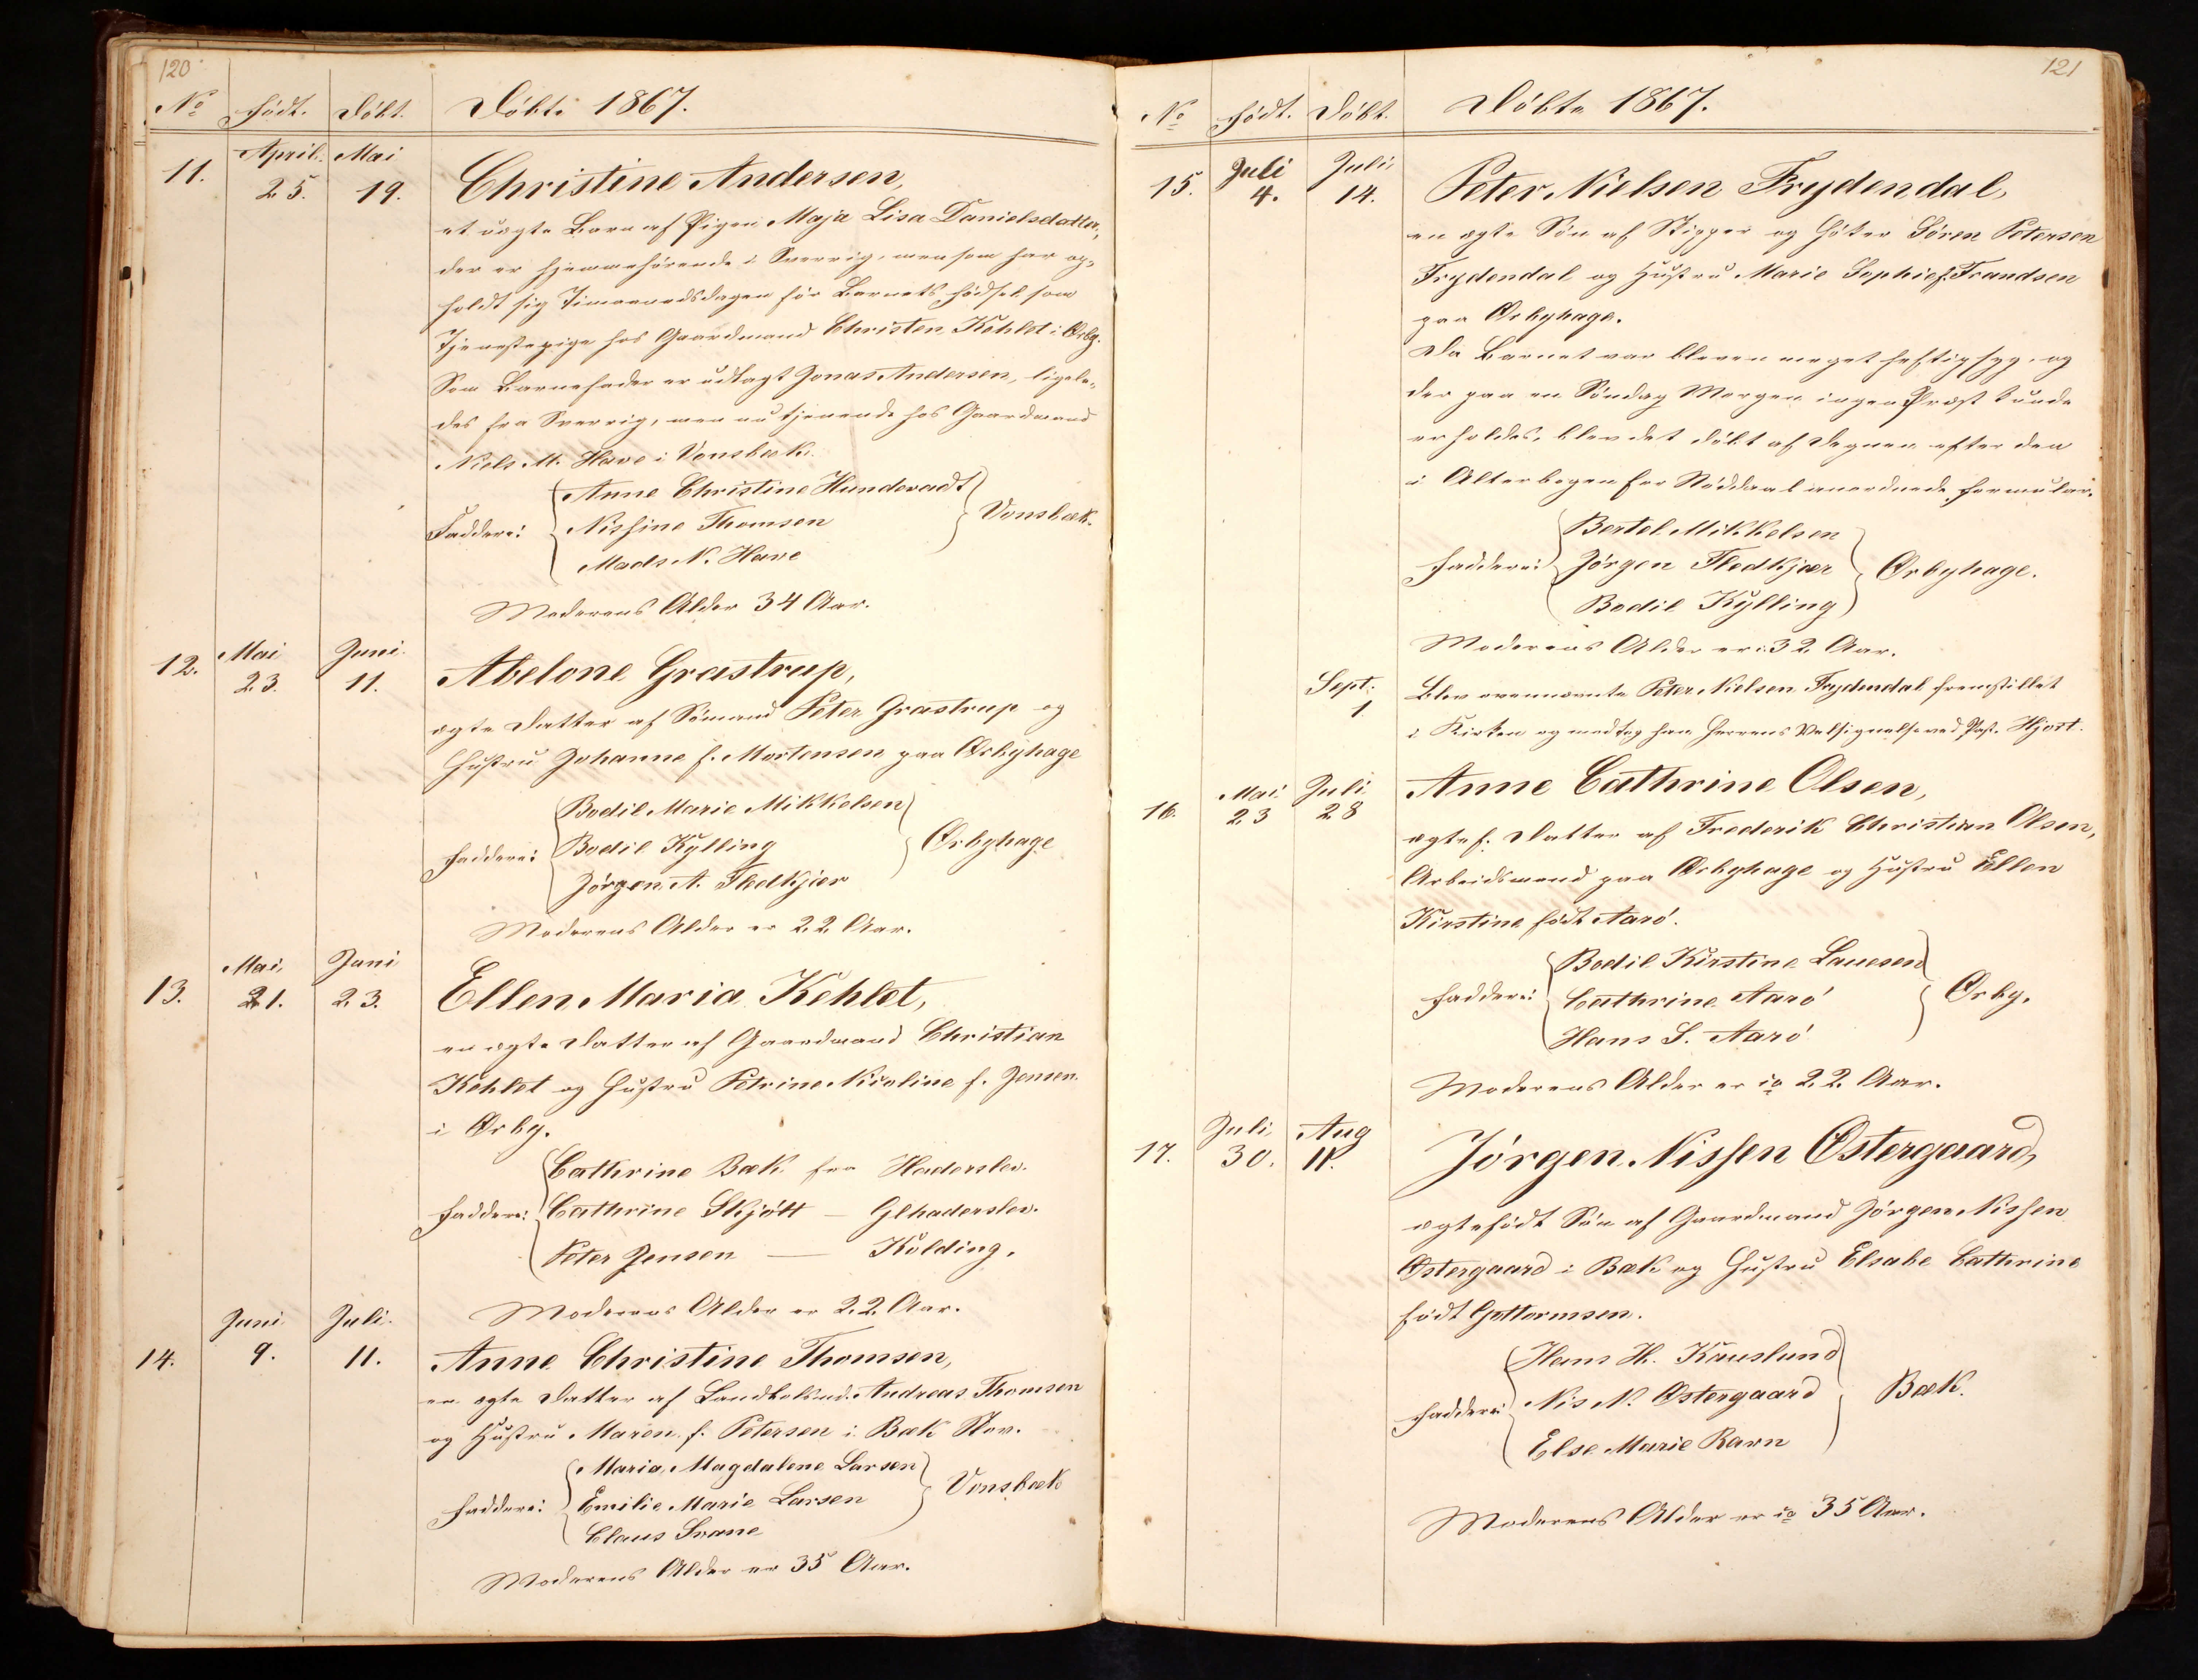 120
No Født. Döbt. Döbte 1867.
11. April 25. Mai 19. Christine Andersen,
et uægte Barn af Pigen Maja Lisa Danielsdatter,
der er hjemmehörende i Sverrig, men som har op-
holdt sig Timaanedsdagen för Barnets Födsel som
Tjenestepige hos Gaardmand Christen Kehlet i Ørby.
Som Barnefader er udlagt Jonas Andersen, ligele-
des fra Sverrig, men nu tjenende hos Gaardmand
Niels M. Have i Vonsbæk.
Anne Christine Hundevadt
Faddere: Nissine Thomsen Vonsbæk.
Mads N. Have
Moderens Alder 34 Aar.
12. Mai 23. Juni 11. Abelone Grastrup,
ægte Datter af Sömand Peter Grastrup og
Hustru Johanne f. Mortensen paa Ørbyhage
Bodil Marie Mikkelsen
Faddere: Bodil Kylling Ørbyhage
Jörgen A. Fledkjær
Moderens Alder er 22 Aar.
13. Mai 21. Juni 23. Ellen Maria Kehlet,
en ægte Datter af Gaardmand Christian
Kehlet og Hustru Petrine Nicoline f. Jensen
i Ørby.
Cathrine Bæk fra Haderslev.
Faddere: Cathrine Skjött — Glhaderslev.
Peter Jensen — Kolding.
Moderens Alder er 22 Aar.
14. Juni 9. Juli 11. Anne Christine Thomsen,
en ægte Datter af Andreas Thomsen
og Hustru Maren f. Petersen i Bæk Skov.
Maria Magdalene Larsen
Faddere: Emilie Marie Larsen Vonsbæk
Claus Svane
Moderens Alder er 35 Aar.
121
No Födt. Döbt. Döbte 1867.
15. Juli 4. Juli 14. Peter Nielsen Frydendal,
en ægte Sön af Skipper og Høker Sören Petersen
Frydendal og Hustru Marie Sophie f. Frandsen
paa Ørbyhage.
Da Barnet var bleven meget heftig syg, og
der paa en Söndag Morgen ingen Præst kunde
erholdes, blev det döbt af Degnen efter den
i Alterbogen for Nöddaab anordnede Formular.
Bertel Mikkelsen
Faddere: Jörgen Fledkjær Ørbyhage.
Bodil Kylling
Moderens Alder er: 32 Aar.
Sept. 1 Blev ovennævnte Peter Nielsen Frydendal fremstillet
i Kirken og modtog han Herrens Velsignelse ved Past. Hjort.
16. Mai 23 Juli 28 Anne Cathrine Olsen,
ægtef. Datter af Frederik Christian Olsen,
Arbeidsmand paa Ørbyhage og Hustru Ellen
Kirstine födt Aarö.
Bodil Kirstine Lauesen
Faddere: Cathrine Aarö Ørby.
Hans S. Aarö
Moderens Alder er ca 22 Aar.
17. Juli 30. Aug 11. Jörgen Nissen Østergaard,
ægtefödt Sön af Gaardmand Jörgen Nissen
Østergaard i Bæk og Hustru Elsabe Cathrine
födt Gottormsen.
Hans H. Kauslund
Faddere: Nis N. Østergaard Bæk.
Else Marie Ravn
Moderens Alder er ca 35 Aar.